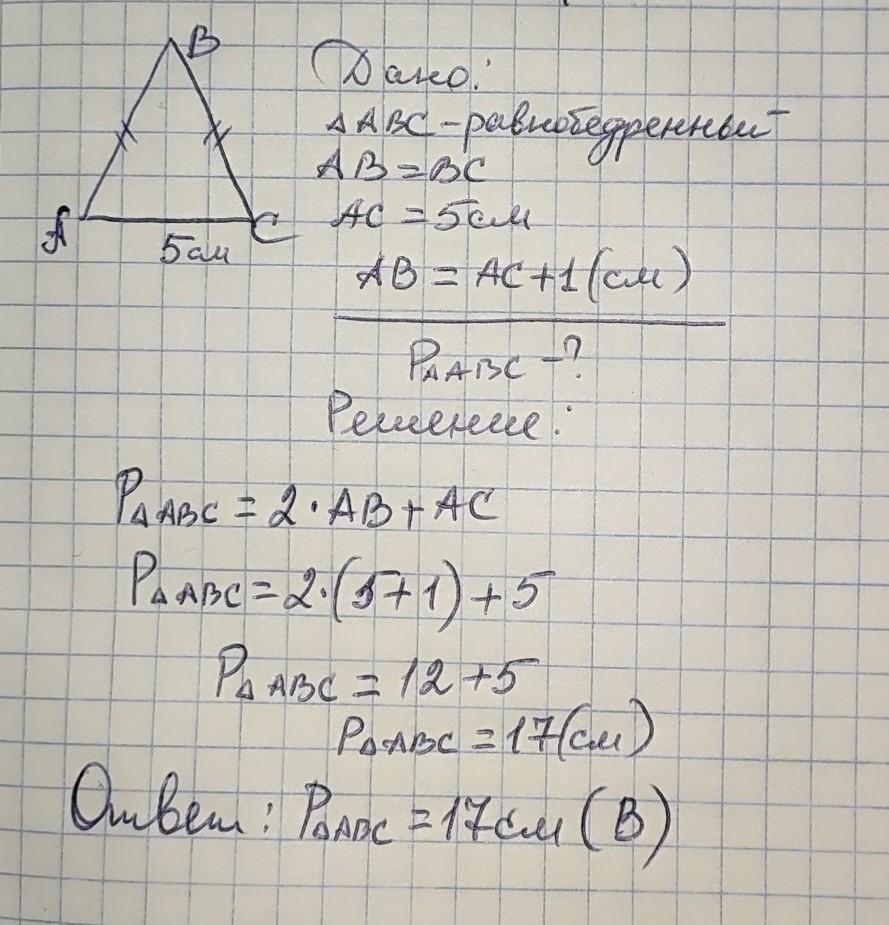 B
Дано:
△ABC - равнобедренный
AB = BC
A
C
AC = 5см
5см
AB = AC + 1 (см)
P△ABC - ?
Решение:
P△ABC = 2 · AB + AC
P△ABC = 2 · (5 + 1) + 5
P△ABC = 12 + 5
P△ABC = 17 (см)
Ответ: P△ABC = 17 см (В)